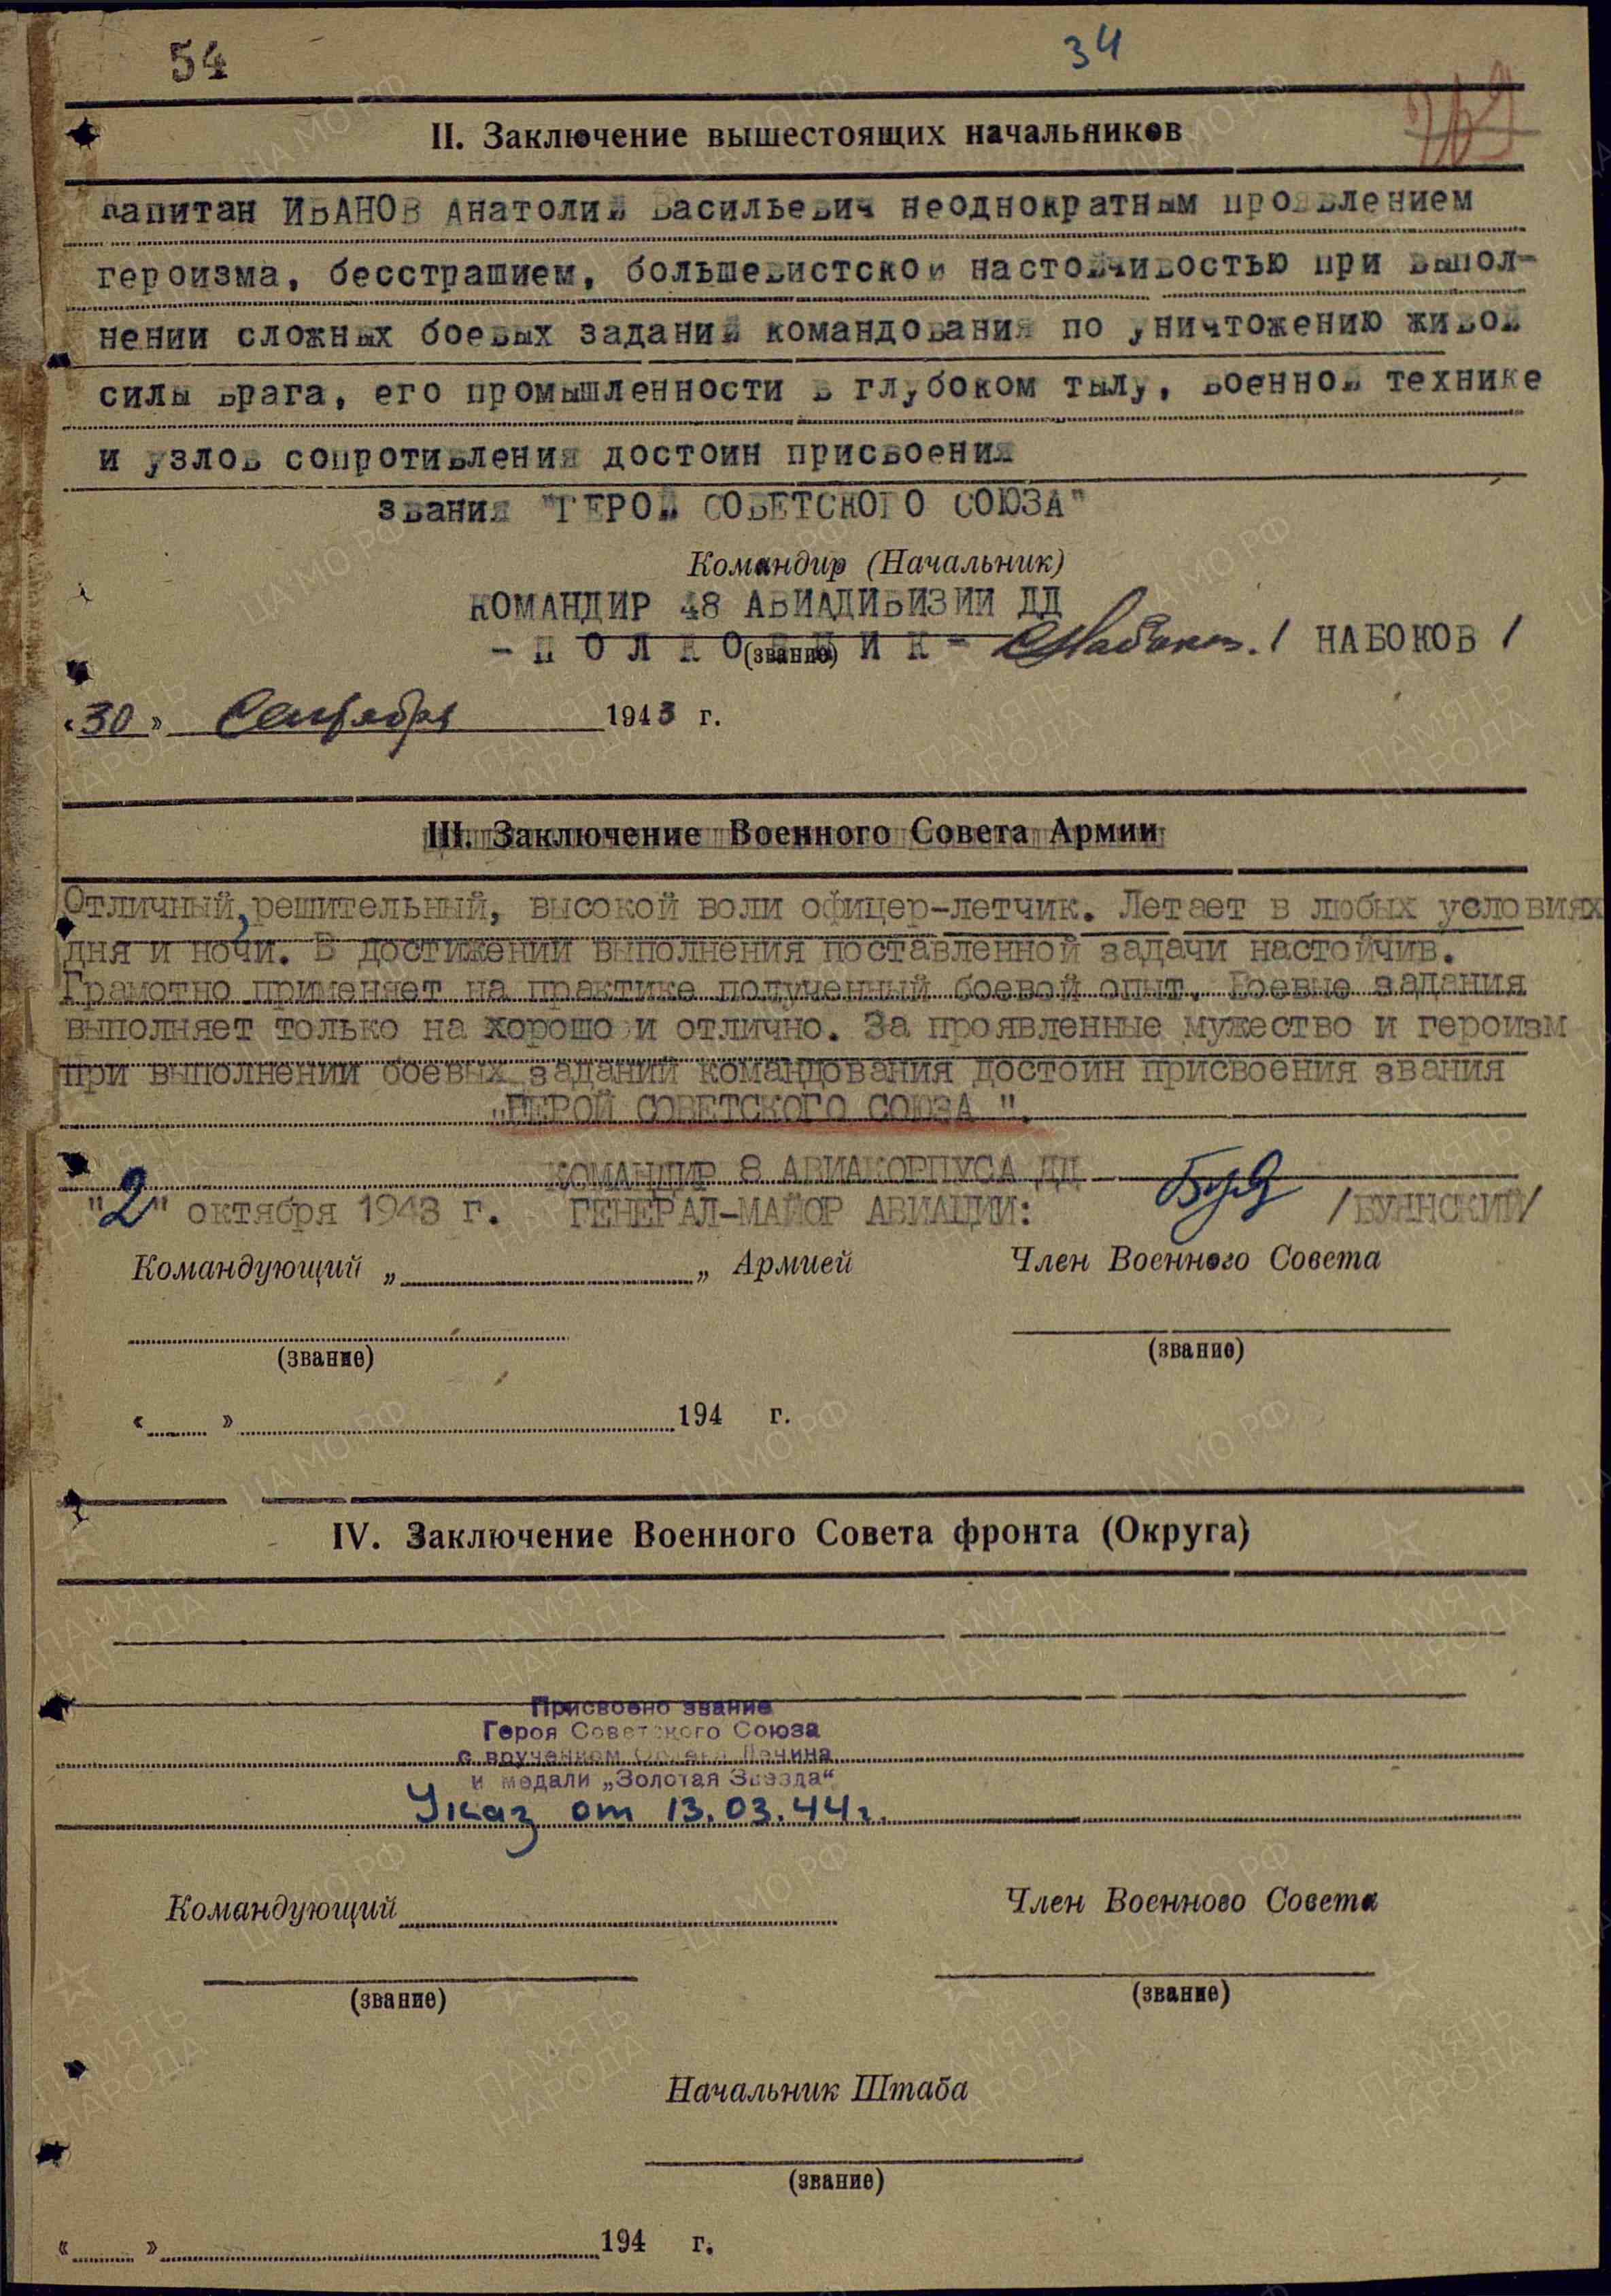 54
34
II. Заключение вышестоящих начальников
капитан ИВАНОВ Анатолий Васильевич неоднократным проявлением
героизма, бесстрашием, большевистской настойчивостью при выпол-
нении сложных боевых заданий командования по уничтожению живой
силы врага, его промышленности в глубоком тылу, военной технике
и узлов сопротивления достоин присвоения
звания "ГЕРОЙ СОВЕТСКОГО СОЮЗА"
Командир (Начальник)
КОМАНДИР 48 АВИАДИВИЗИИ ДД
- П О Л К О В Н И К - / НАБОКОВ /
(звание)
«30» Сентября 1943 г.
III. Заключение Военного Совета Армии
Отличный, решительный, высокой воли офицер-летчик. Летает в любых условиях
дня и ночи. В достижении выполнения поставленной задачи настойчив.
Грамотно применяет на практике полученный боевой опыт. Боевые задания
выполняет только на хорошо и отлично. За проявленные мужество и героизм
при выполнении боевых заданий командования достоин присвоения звания
„ГЕРОЙ СОВЕТСКОГО СОЮЗА ".
КОМАНДИР 8 АВИАКОРПУСА ДД
"2" октября 1943 г. ГЕНЕРАЛ-МАЙОР АВИАЦИИ: /БУЯНСКИЙ/
Командующий „ „ Армией Член Военного Совета
(звание) (звание)
« » 194 г.
IV. Заключение Военного Совета фронта (Округа)
Присвоено звание
Героя Советского Союза
с вручением Ордена Ленина
и медали „Золотая Звезда“
Указ от 13.03.44г.
Командующий Член Военного Совета
(звание) (звание)
Начальник Штаба
(звание)
« » 194 г.
ПАМЯТЬ НАРОДА
ЦА МО РФ